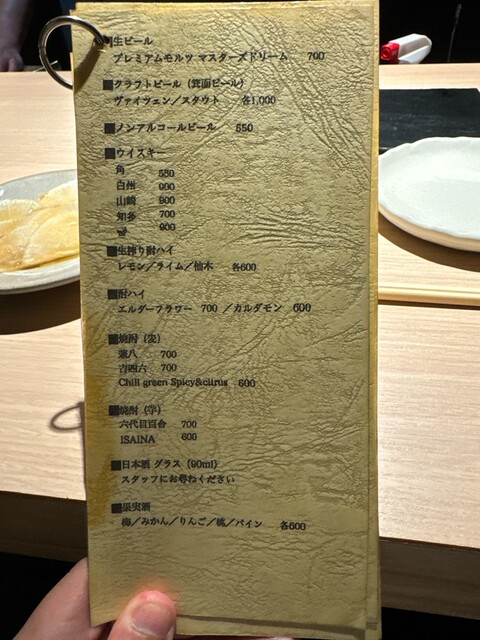 ■生ビール
プレミアムモルツ マスターズドリーム 700
■クラフトビール（箕面ビール）
ヴァイツェン／スタウト 各1,000
■ノンアルコールビール 550
■ウイスキー
角 550
白州 900
山崎 900
知多 700
900
■生搾り酎ハイ
レモン／ライム／柚木 各600
■酎ハイ
エルダーフラワー 700 ／カルダモン 600
■焼酎（麦）
兼八 700
吉四六 700
Chill green Spicy&citrus 600
■焼酎（芋）
六代目百合 700
ISAINA 600
■日本酒 グラス（90ml）
スタッフにお尋ねください
■果実酒
梅／みかん／りんご／桃／パイン 各600